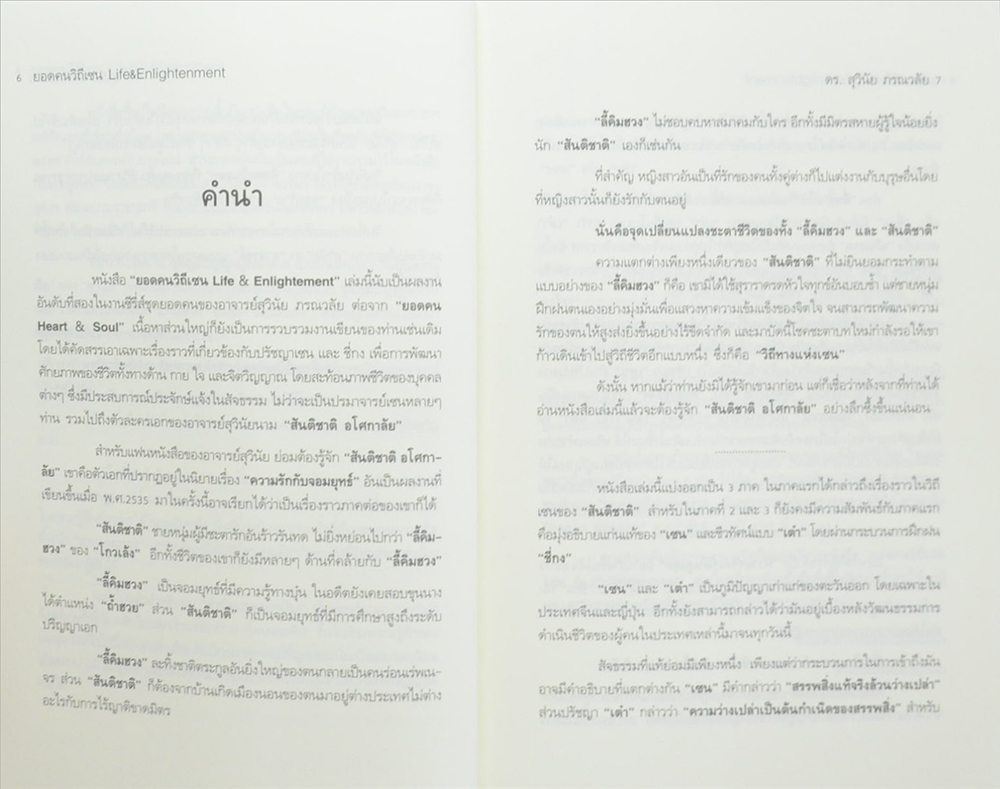 6 ยอดคนวิถีเซน Life&Enlightenment
คำนำ
หนังสือ "ยอดคนวิถีเซน Life & Enlightement" เล่มนี้นับเป็นผลงาน
อันดับที่สองในงานซีรี่ส์ชุดยอดคนของอาจารย์สุวินัย ภรณวลัย ต่อจาก "ยอดคน
Heart & Soul" เนื้อหาส่วนใหญ่ก็ยังเป็นการรวบรวมงานเขียนของท่านเช่นเดิม
โดยได้คัดสรรเอาเฉพาะเรื่องราวที่เกี่ยวข้องกับปรัชญาเซน และ ชี่กง เพื่อการพัฒนา
ศักยภาพของชีวิตทั้งทางด้าน กาย ใจ และจิตวิญญาณ โดยสะท้อนภาพชีวิตของบุคคล
ต่างๆ ซึ่งมีประสบการณ์ประจักษ์แจ้งในสัจธรรม ไม่ว่าจะเป็นปรมาจารย์เซนหลายๆ
ท่าน รวมไปถึงตัวละครเอกของอาจารย์สุวินัยนาม "สันติชาติ อโศกาลัย"
สำหรับแฟนหนังสือของอาจารย์สุวินัย ย่อมต้องรู้จัก "สันติชาติ อโศกา-
ลัย" เขาคือตัวเอกที่ปรากฏอยู่ในนิยายเรื่อง "ความรักกับจอมยุทธ์" อันเป็นผลงานที่
เขียนขึ้นเมื่อ พ.ศ.2535 มาในครั้งนี้อาจเรียกได้ว่าเป็นเรื่องราวภาคต่อของเขาก็ได้
"สันติชาติ" ชายหนุ่มผู้มีชะตารักอันร้าวรันทด ไม่ยิ่งหย่อนไปกว่า "ลี้คิม-
ฮวง" ของ "โกวเล้ง" อีกทั้งชีวิตของเขาก็ยังมีหลายๆ ด้านที่คล้ายกับ "ลี้คิมฮวง"
"ลี้คิมฮวง" เป็นจอมยุทธ์ที่มีความรู้ทางบุ๋น ในอดีตยังเคยสอบขุนนาง
ได้ตำแหน่ง "ถ้ำฮวย" ส่วน "สันติชาติ" ก็เป็นจอมยุทธ์ที่มีการศึกษาสูงถึงระดับ
ปริญญาเอก
"ลี้คิมฮวง" ละทิ้งชาติตระกูลอันยิ่งใหญ่ของตนกลายเป็นคนร่อนเร่พเน-
จร ส่วน "สันติชาติ" ก็ต้องจากบ้านเกิดเมืองนอนของตนมาอยู่ต่างประเทศไม่ต่าง
อะไรกับการไร้ญาติขาดมิตร
ดร. สุวินัย ภรณวลัย 7
"ลี้คิมฮวง" ไม่ชอบคบหาสมาคมกับใคร อีกทั้งมีมิตรสหายผู้รู้ใจน้อยยิ่ง
นัก "สันติชาติ" เองก็เช่นกัน
ที่สำคัญ หญิงสาวอันเป็นที่รักของคนทั้งคู่ต่างก็ไปแต่งงานกับบุรุษอื่นโดย
ที่หญิงสาวนั้นก็ยังรักกับตนอยู่
นั่นคือจุดเปลี่ยนแปลงชะตาชีวิตของทั้ง "ลี้คิมฮวง" และ "สันติชาติ"
ความแตกต่างเพียงหนึ่งเดียวของ "สันติชาติ" ที่ไม่ยินยอมกระทำตาม
แบบอย่างของ "ลี้คิมฮวง" ก็คือ เขามิได้ใช้สุราราดรดหัวใจทุกข์อันบอบช้ำ แต่ชายหนุ่ม
ฝึกฝนตนเองอย่างมุ่งมั่นเพื่อแสวงหาความเข้มแข็งของจิตใจ จนสามารถพัฒนาความ
รักของตนให้สูงส่งยิ่งขึ้นอย่างไร้ขีดจำกัด และมาบัดนี้โชคชะตาบทใหม่กำลังรอให้เขา
ก้าวเดินเข้าไปสู่วิถีชีวิตอีกแบบหนึ่ง ซึ่งก็คือ "วิถีทางแห่งเซน"
ดังนั้น หากแม้ว่าท่านยังมิได้รู้จักเขามาก่อน แต่ก็เชื่อว่าหลังจากที่ท่านได้
อ่านหนังสือเล่มนี้แล้วจะต้องรู้จัก "สันติชาติ อโศกาลัย" อย่างลึกซึ้งขึ้นแน่นอน
หนังสือเล่มนี้แบ่งออกเป็น 3 ภาค ในภาคแรกได้กล่าวถึงเรื่องราวในวิถี
เซนของ "สันติชาติ" สำหรับในภาคที่ 2 และ 3 ก็ยังคงมีความสัมพันธ์กับภาคแรก
คือมุ่งอธิบายแก่นแท้ของ "เซน" และชีวทัศน์แบบ "เต๋า" โดยผ่านกระบวนการฝึกฝน
"ชี่กง"
"เซน" และ "เต๋า" เป็นภูมิปัญญาเก่าแก่ของตะวันออก โดยเฉพาะใน
ประเทศจีนและญี่ปุ่น อีกทั้งยังสามารถกล่าวได้ว่ามันอยู่เบื้องหลังวัฒนธรรมการ
ดำเนินชีวิตของผู้คนในประเทศเหล่านี้มาจนทุกวันนี้
สัจธรรมที่แท้ย่อมมีเพียงหนึ่ง เพียงแต่ว่ากระบวนการในการเข้าถึงมัน
อาจมีคำอธิบายที่แตกต่างกัน "เซน" มีคำกล่าวว่า "สรรพสิ่งแท้จริงล้วนว่างเปล่า"
ส่วนปรัชญา "เต๋า" กล่าวว่า "ความว่างเปล่าเป็นต้นกำเนิดของสรรพสิ่ง" สำหรับ